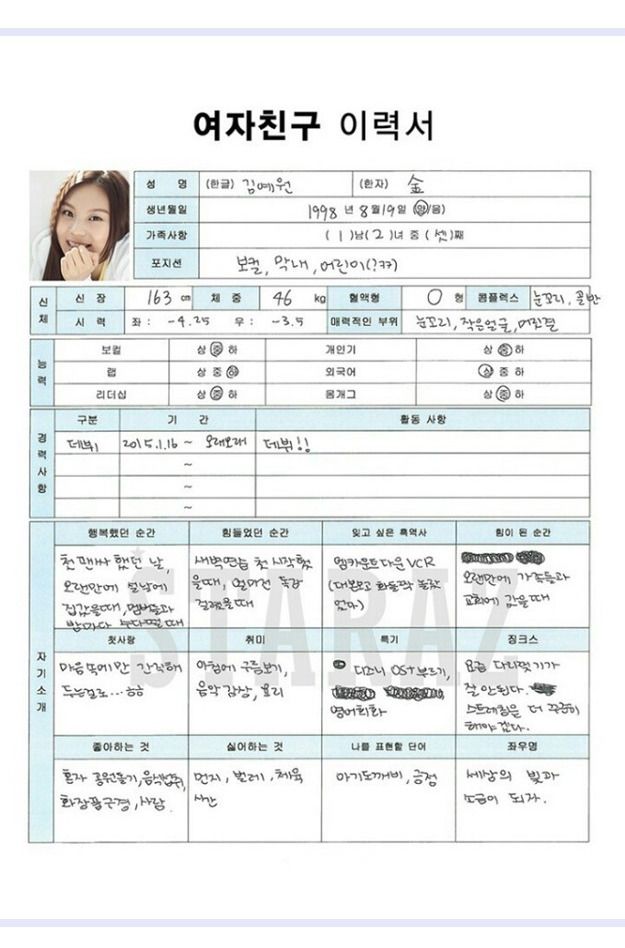 여자친구 이력서
성 명 (한글) 김예원 (한자) 金
생년월일 1998 년 8 월 19 일 (양/음)
가족사항 ( 1 )남( 2 )녀 중 ( 셋 )째
포지션 보컬, 막내, 어린이(?ㅋㅋ)
신체 신 장 163 cm 체 중 46 kg 혈액형 O 형 콤플렉스 눈꼬리, 골반
시 력 좌 : -4.25 우 : -3.5 매력적인 부위 눈꼬리, 작은얼굴, 머릿결
능력 보컬 상 중 하 개인기 상 중 하
랩 상 중 하 외국어 상 중 하
리더십 상 중 하 몸개그 상 중 하
경력사항 구분 기 간 활동 사항
데뷔 2015.1.16 ~ 오래오래 데뷔!!
~
~
~
자기소개
행복했던 순간 힘들었던 순간 잊고 싶은 흑역사 힘이 된 순간
첫 팬싸 했던 날,
오랜만에 설날에
집갔을때, 멤버들과
밤마다 수다떨 때
새벽연습 첫 시작했
을때, 얼마전 독감
걸렸을때
엠카운트다운 VCR
(대본보고 화들짝 놀랐
었다)
오랜만에 가족들과
교회에 갔을때
첫사랑 취미 특기 징크스
마음 속에만 간직해
두는걸로… ㅎㅎ
아침에 구름보기,
음악감상, 요리
디즈니 OST부르기,
영어회화
요즘 다리찢기가
잘 안된다.
스트레칭을 더 꾸준히
해야겠다.
좋아하는 것 싫어하는 것 나를 표현할 단어 좌우명
혼자 공원돌기, 음식섭취,
화장품구경, 사람
먼지, 벌레, 체육
시간
아기도깨비, 긍정
세상의 빛과
소금이 되자.
STARAZ